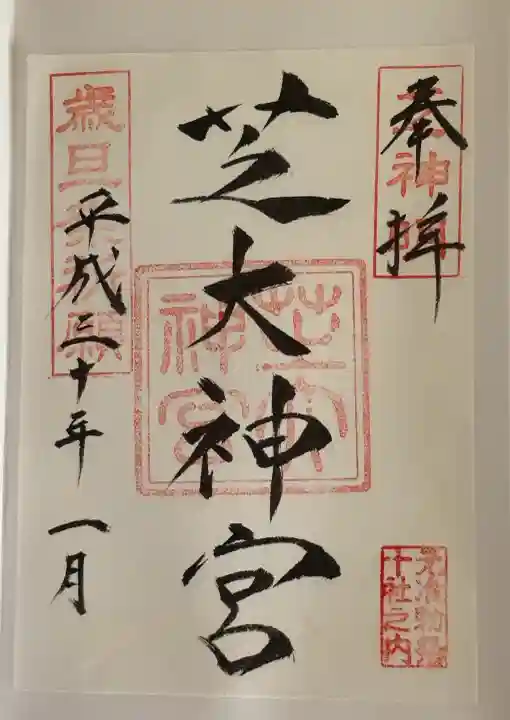 奉拝
芝大神宮
芝大神宮
歳旦
平成三十年 一月
十社之内